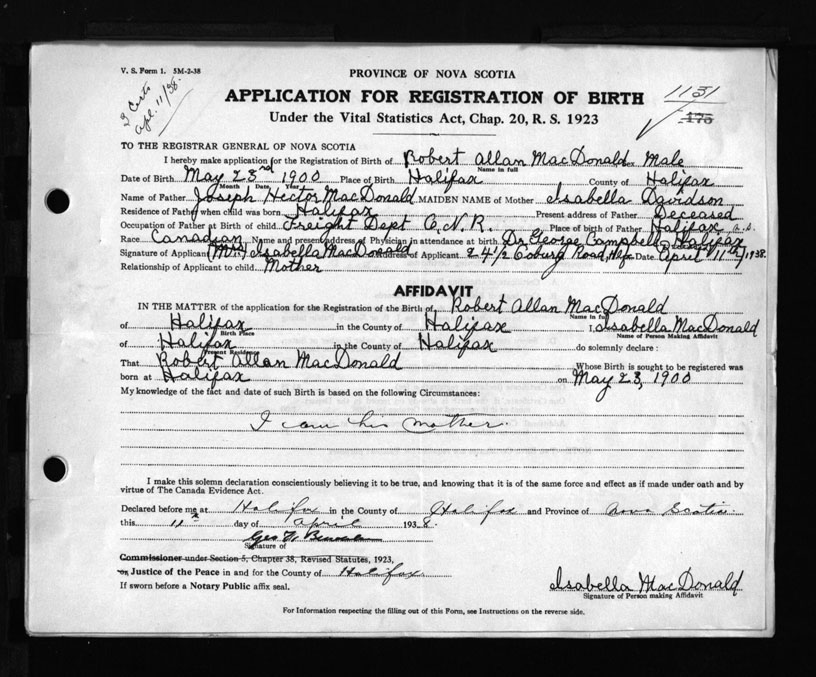 V. S. Form 1. 5M-2-38
PROVINCE OF NOVA SCOTIA
3 Certs
Apl. 11/38.
APPLICATION FOR REGISTRATION OF BIRTH
1131
175
Under the Vital Statistics Act, Chap. 20, R. S. 1923
TO THE REGISTRAR GENERAL OF NOVA SCOTIA
I hereby make application for the Registration of Birth of Robert Allan MacDonald Sex Male
Name in full
Date of Birth May 23rd 1900 Place of Birth Halifax County of Halifax
Month Date Year
Name of Father Joseph Hector MacDonald MAIDEN NAME of Mother Isabella Davidson
Residence of Father when child was born Halifax Present address of Father Deceased
Occupation of Father at Birth of child Freight Dept C.N.R. Place of birth of Father Halifax N.S.
Race Canadian Name and present address of Physician in attendance at birth Dr George Campbell Halifax
Signature of Applicant (Mrs) Isabella MacDonald Address of Applicant 241/2 Coburg Road, Hfx Date April 11th 1938.
Relationship of Applicant to child Mother
AFFIDAVIT
IN THE MATTER of the application for the Registration of the Birth of Robert Allan MacDonald
Name in full
of Halifax in the County of Halifax I, Isabella MacDonald
Birth Place Name of Person Making Affidavit
of Halifax in the County of Halifax do solemnly declare :
Present Residence
That Robert Allan MacDonald Whose Birth is sought to be registered was
born at Halifax on May 23, 1900
My knowledge of the fact and date of such Birth is based on the following Circumstances:
I am his mother.
I make this solemn declaration conscientiously believing it to be true, and knowing that it is of the same force and effect as if made under oath and by
virtue of The Canada Evidence Act.
Declared before me at Halifax in the County of Halifax and Province of Nova Scotia
this 11th day of April 1938.
Geo
Signature of
Commissioner under Section 5, Chapter 38, Revised Statutes, 1923,
or Justice of the Peace in and for the County of Halifax
If sworn before a Notary Public affix seal.
Isabella MacDonald
Signature of Person making Affidavit
For Information respecting the filling out of this Form, see Instructions on the reverse side.